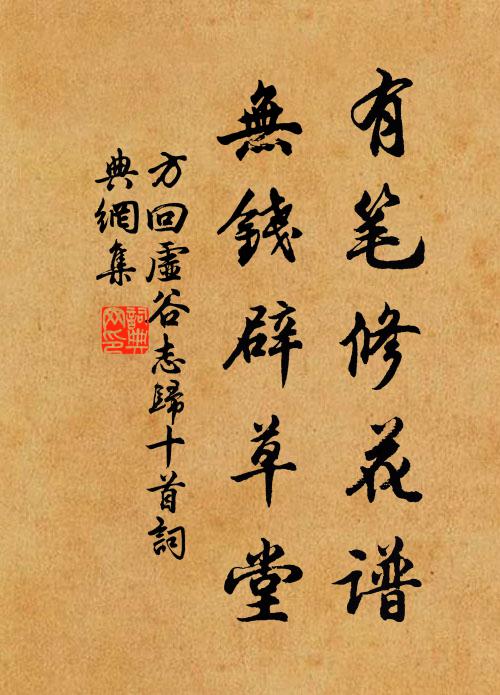 有笔修花谱
無錢辟草堂
方回虛谷志歸十首詞
典網集
詞典
网印